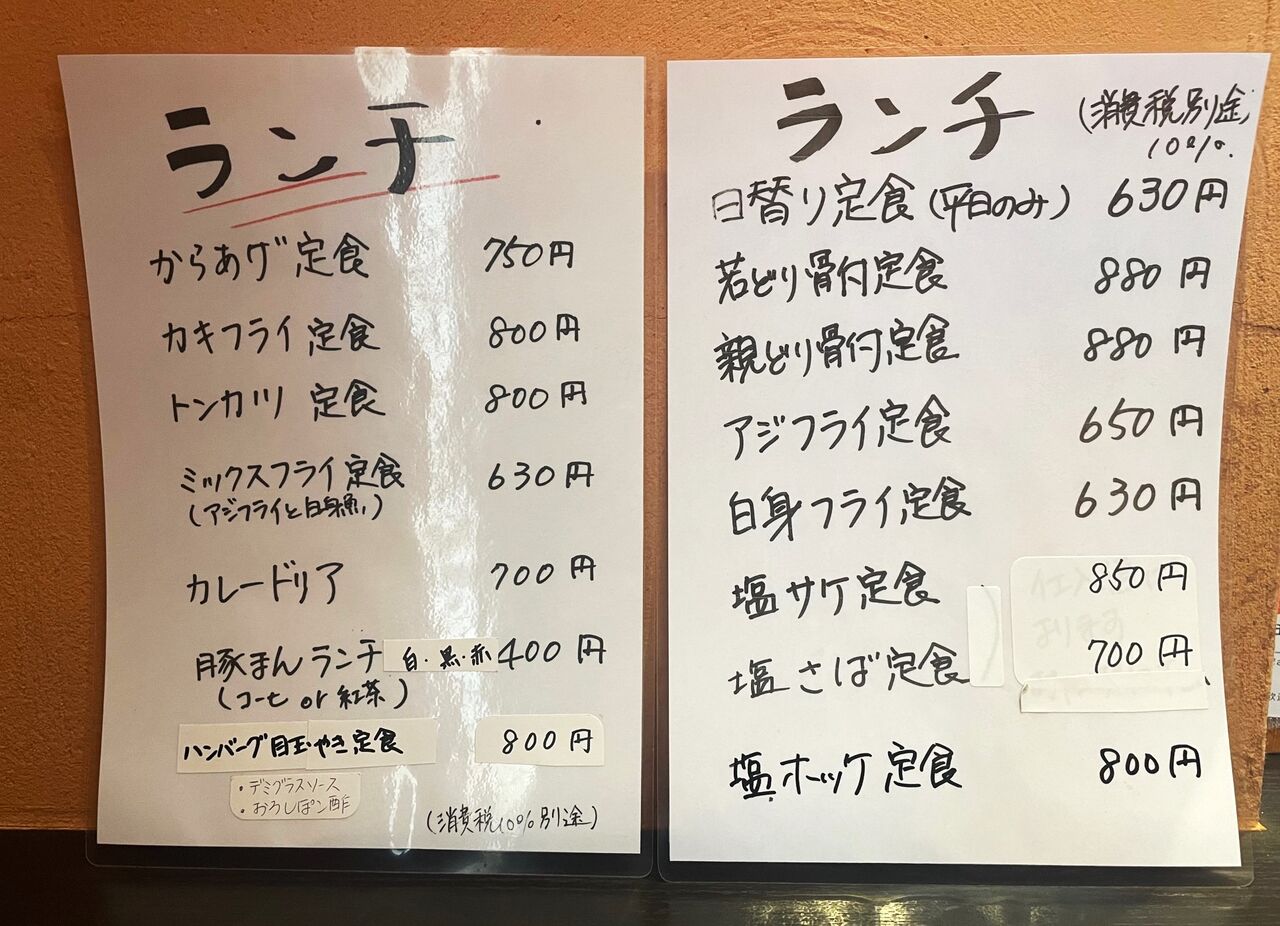 ランチ
からあげ定食 750円
カキフライ定食 800円
トンカツ定食 800円
ミックスフライ定食 630円
(アジフライと白身魚)
カレードリア 700円
豚まんランチ 白・黒・赤 400円
(コーヒ or 紅茶)
ハンバーグ目玉やき定食 800円
・デミグラスソース
・おろしぽン酢
(消費税10%別途)
ランチ (消費税別途)
10%
日替り定食(平日のみ) 630円
若どり骨付定食 880円
親どり骨付定食 880円
アジフライ定食 650円
白身フライ定食 630円
塩サケ定食 850円
塩さば定食 700円
塩ホッケ定食 800円